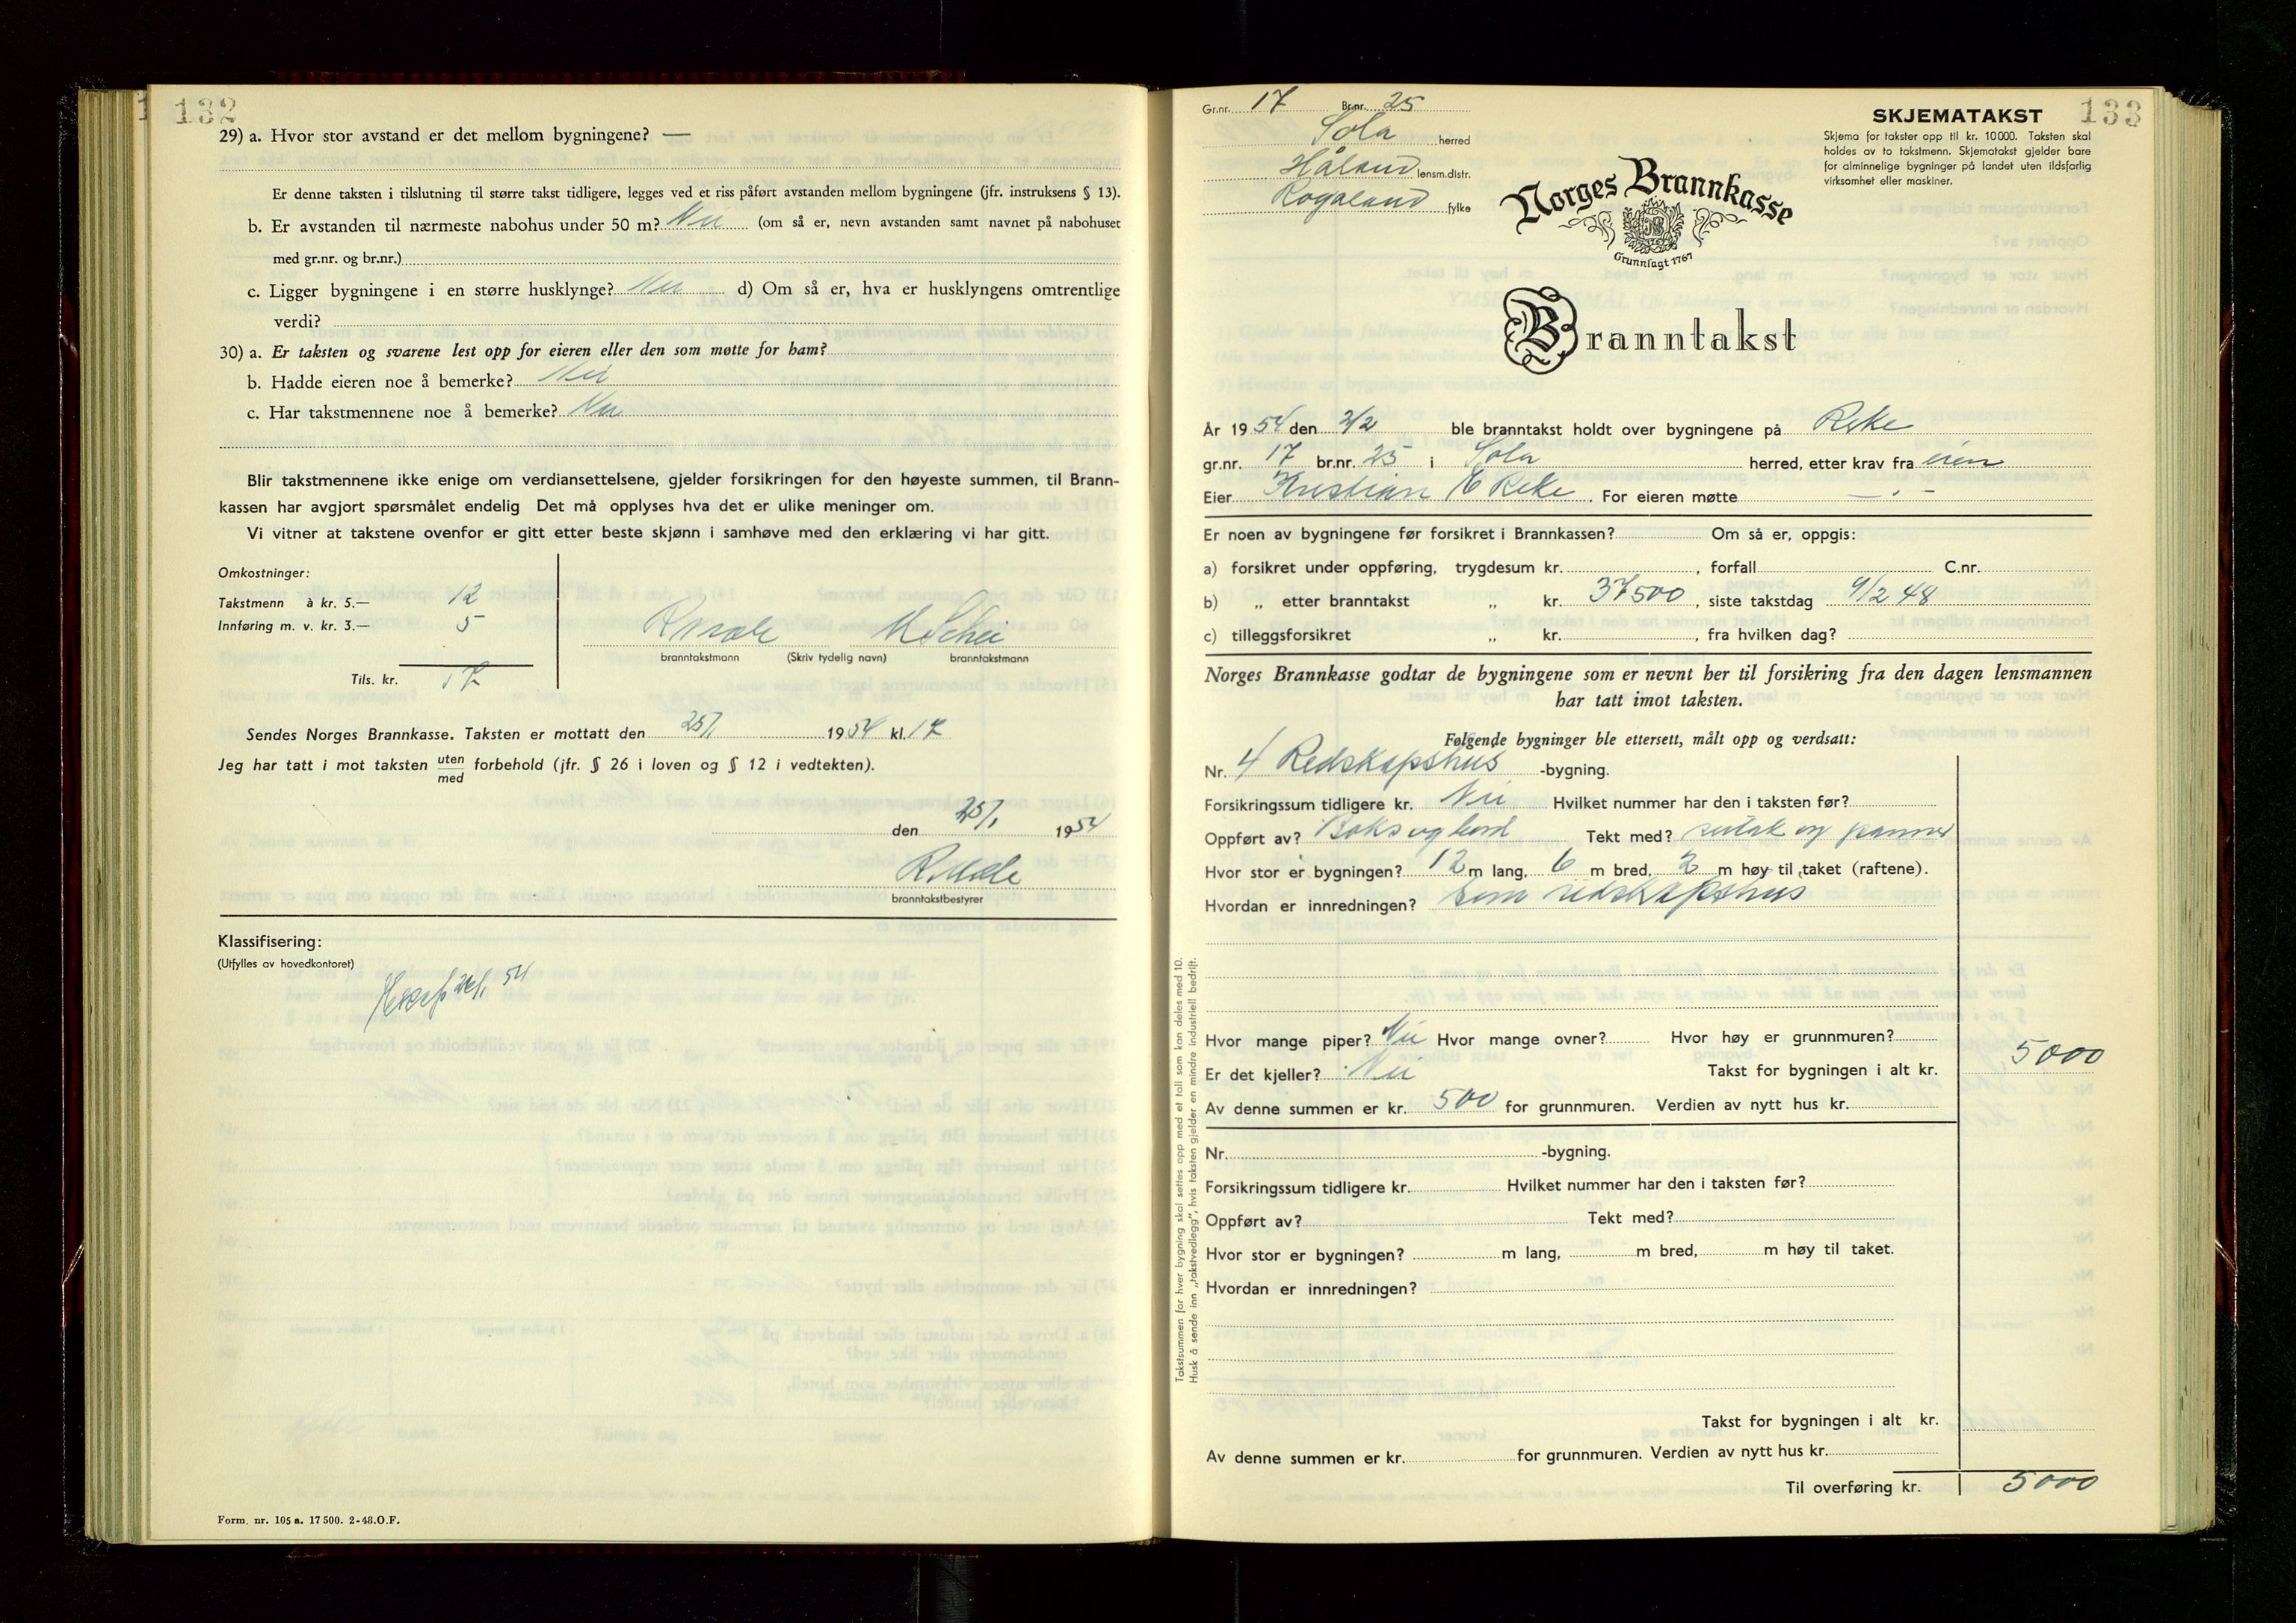 132
29) a. Hvor stor avstand er det mellom bygningene? —
Er denne taksten i tilslutning til større takst tidligere, legges ved et riss påført avstanden mellom bygningene (jfr. instruksens § 13).
b. Er avstanden til nærmeste nabohus under 50 m? Nei (om så er, nevn avstanden samt navnet på nabohuset
med gr.nr. og br.nr.)
c. Ligger bygningene i en større husklynge? Nei d) Om så er, hva er husklyngens omtrentlige
verdi?
30) a. Er taksten og svarene lest opp for eieren eller den som møtte for ham?
b. Hadde eieren noe å bemerke? Nei
c. Har takstmennene noe å bemerke? Nei
Blir takstmennene ikke enige om verdiansettelsene, gjelder forsikringen for den høyeste summen, til Brann-
kassen har avgjort spørsmålet endelig Det må opplyses hva det er ulike meninger om.
Vi vitner at takstene ovenfor er gitt etter beste skjønn i samhøve med den erklæring vi har gitt.
Omkostninger:
Takstmenn à kr. 5.— 12
Innføring m. v. kr. 3.— 5
Tils. kr. 17
branntakstmann (Skriv tydelig navn) branntakstmann
Sendes Norges Brannkasse. Taksten er mottatt den 25/1 1954 kl. 17
Jeg har tatt i mot taksten uten/med forbehold (jfr. § 26 i loven og § 12 i vedtekten).
den 25/1 1954
branntakstbestyrer
Klassifisering:
(Utfylles av hovedkontoret)
54
Form. nr. 105 a. 17 500. 2-48. O.F.
133
Gr.nr. 17 Br.nr. 25
Sola herred
Håland lensm.distr.
Rogaland fylke
SKJEMATAKST
Skjema for takster opp til kr. 10000. Taksten skal
holdes av to takstmenn. Skjematakst gjelder bare
for alminnelige bygninger på landet uten ildsfarlig
virksomhet eller maskiner.
Norges Brannkasse
Grunnlagt 1767
Branntakst
År 1954 den 2/2 ble branntakst holdt over bygningene på Reke
gr.nr. 17 br.nr. 25 i Sola herred, etter krav fra eieren
Eier Kristian E Reke. For eieren møtte — " —
Er noen av bygningene før forsikret i Brannkassen? Om så er, oppgis:
a) forsikret under oppføring, trygdesum kr. , forfall C.nr.
b) „ etter branntakst „ kr. 37500, siste takstdag 9/2 48
c) tilleggsforsikret „ kr. , fra hvilken dag?
Norges Brannkasse godtar de bygningene som er nevnt her til forsikring fra den dagen lensmannen
har tatt imot taksten.
Følgende bygninger ble ettersett, målt opp og verdsatt:
Nr. 4 Redskapshus -bygning.
Forsikringssum tidligere kr. Nei Hvilket nummer har den i taksten før?
Oppført av? Boks og bord Tekt med? sutak og panner
Hvor stor er bygningen? 12 m lang, 6 m bred, 2 m høy til taket (raftene).
Hvordan er innredningen? Som redskapshus
Hvor mange piper? Nei Hvor mange ovner? Hvor høy er grunnmuren?
Er det kjeller? Nei Takst for bygningen i alt kr. 5000
Av denne summen er kr. 500 for grunnmuren. Verdien av nytt hus kr.
Nr. -bygning.
Forsikringssum tidligere kr. Hvilket nummer har den i taksten før?
Oppført av? Tekt med?
Hvor stor er bygningen? m lang, m bred, m høy til taket.
Hvordan er innredningen?
Takst for bygningen i alt kr.
Av denne summen er kr. for grunnmuren. Verdien av nytt hus kr.
Til overføring kr. 5000
Takstsummen for hver bygning skal settes opp med et tall som kan deles med 10.
Husk å sende inn „takstvedlegg", hvis taksten gjelder en mindre industriell bedrift.